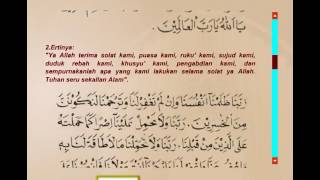 يَا اللهُ يَا رَبَّ الْعَالَمِيْنَ.
2.Ertinya:
"Ya Allah terima solat kami, puasa kami, ruku' kami, sujud kami,
duduk rebah kami, khusyu' kami, pengabdian kami, dan
sempurnakanlah apa yang kami lakukan selama solat ya Allah.
Tuhan seru sekalian Alam".
رَبَّنَا ظَلَمْنَا اَنْفُسَنَا وَاِنْ لَمْ تَغْفِرْلَنَا وَتَرْحَمْنَا لَنَكُوْنَنَّ
مِنَ الْخٰسِرِيْنَ. رَبَّنَا وَلَا تَحْمِلْ عَلَيْنَا اِصْرًا كَمَا حَمَلْتَهُ
عَلَى الَّذِيْنَ مِنْ قَبْلِنَا. رَبَّنَا وَلَا تُحَمِّلْنَا مَا لَا طَاقَةَ لَنَا بِهِ